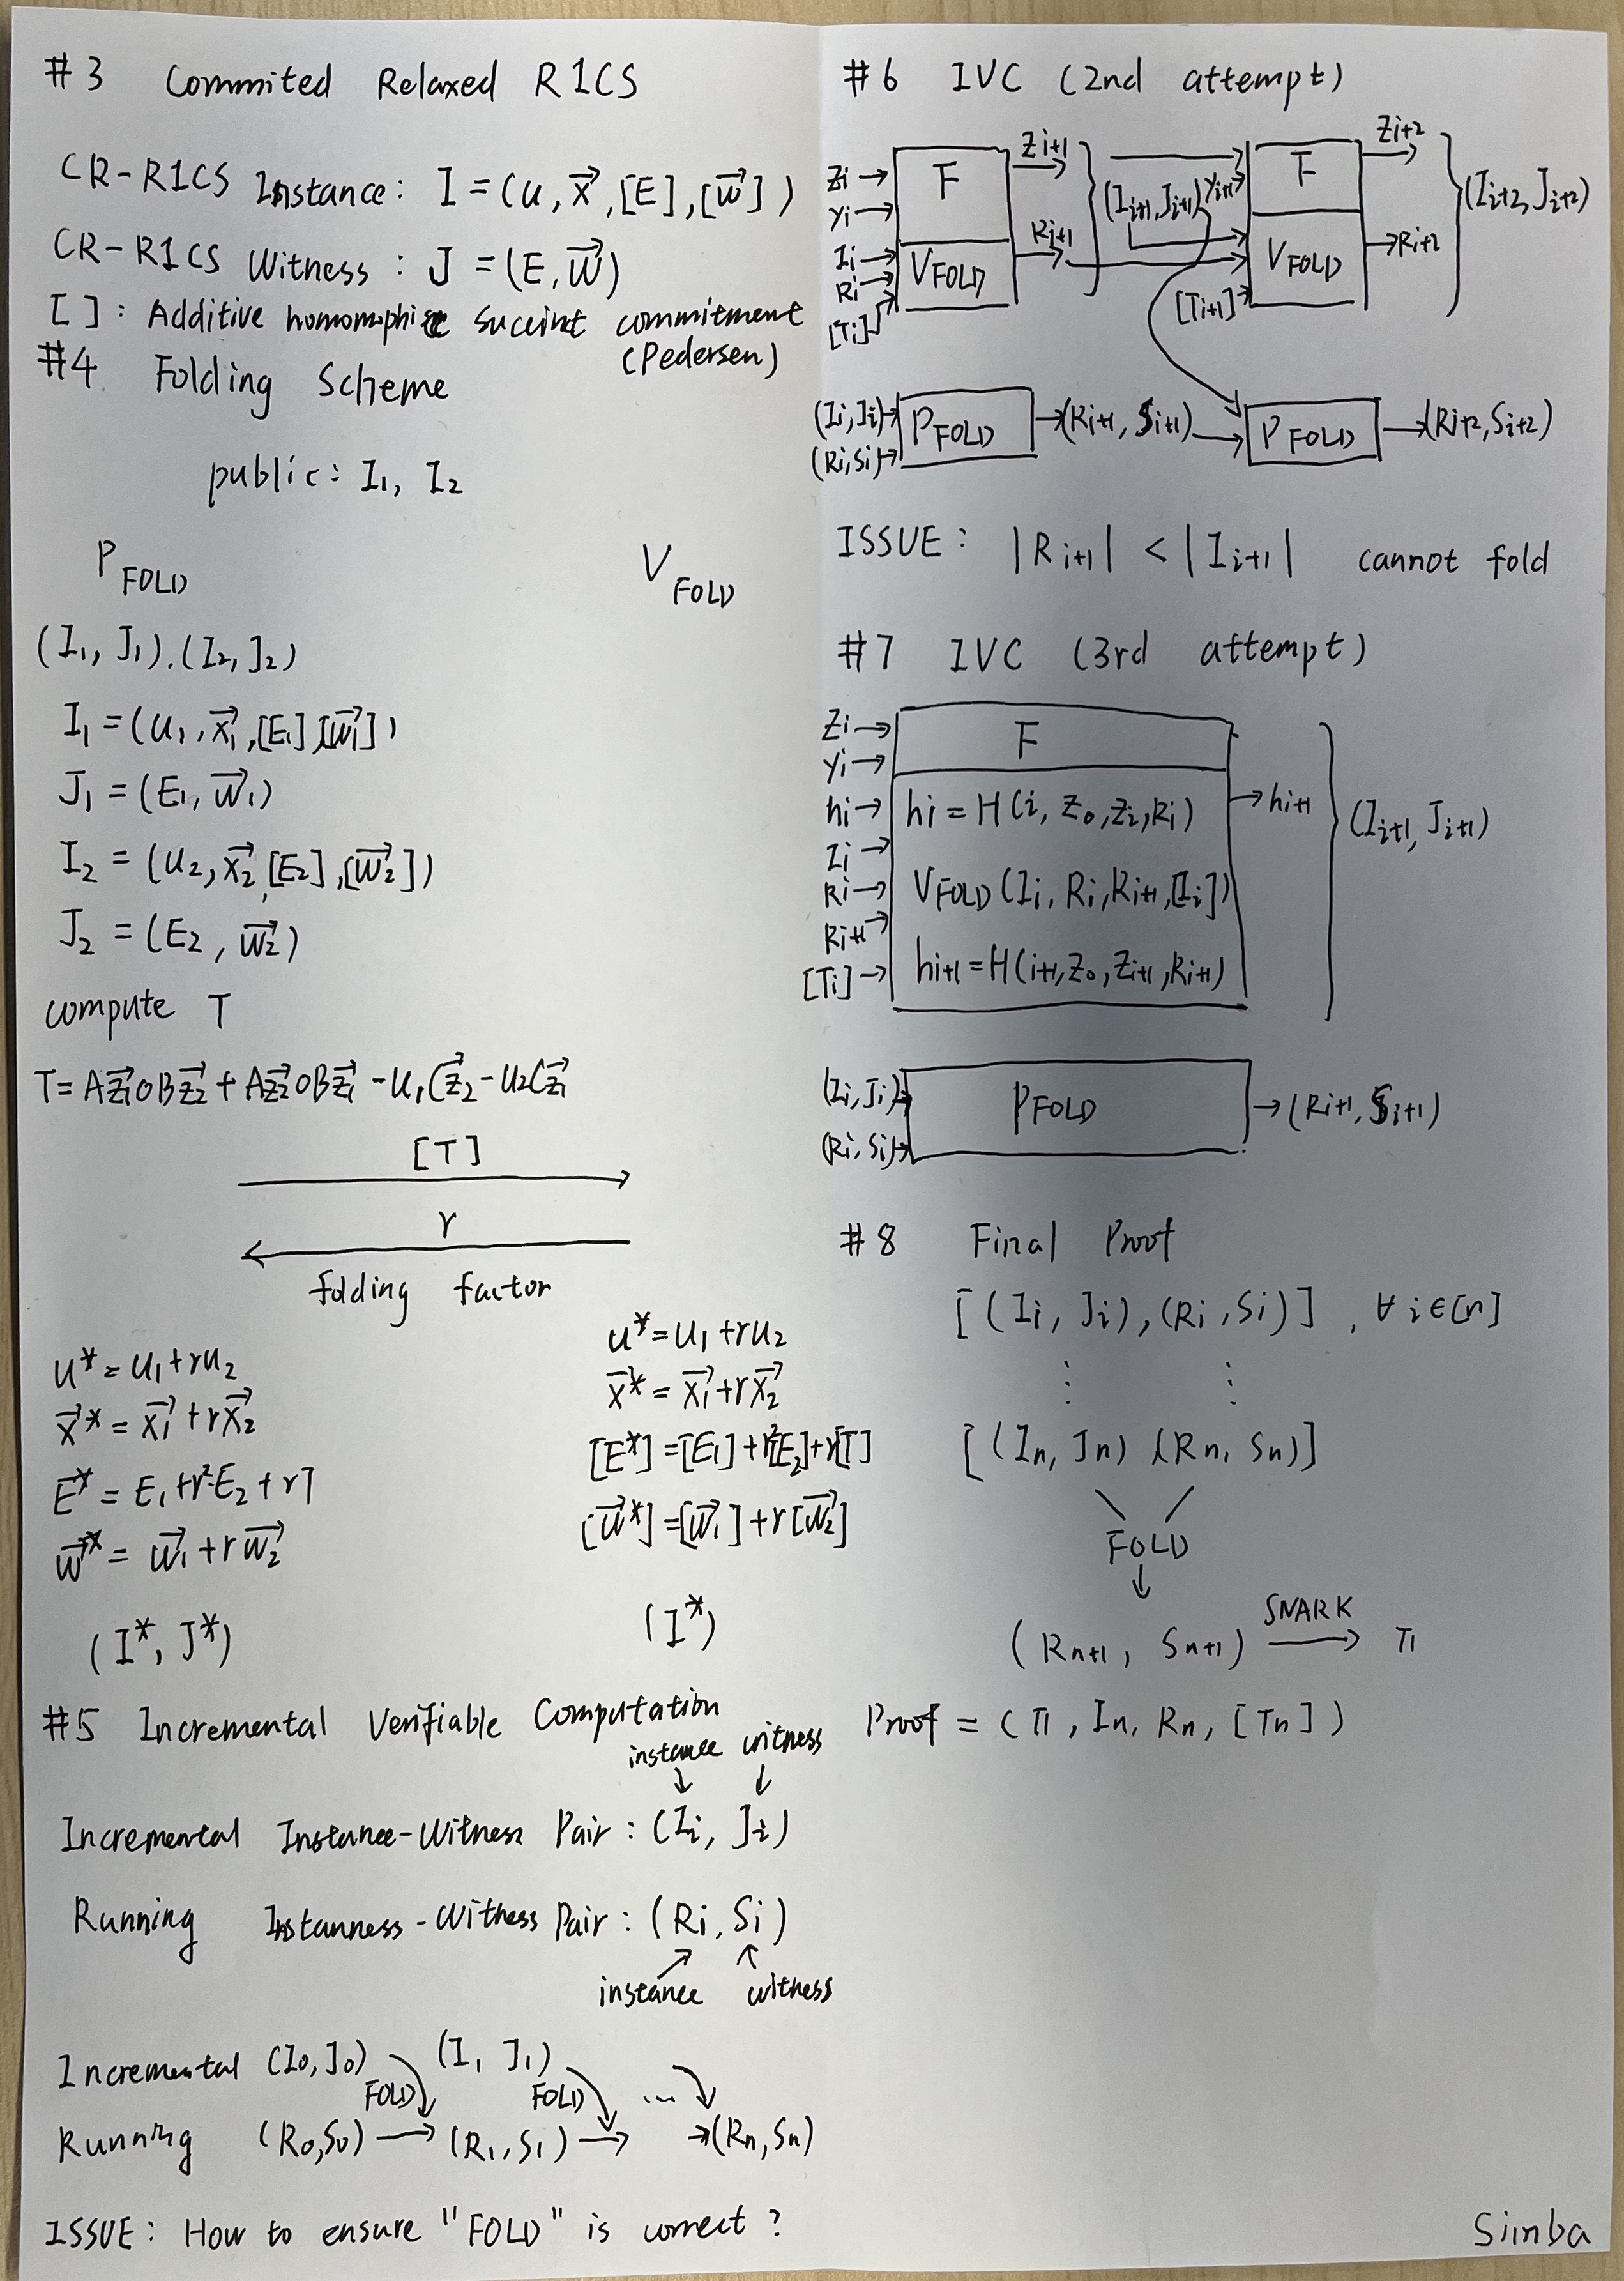 #3 Commited Relaxed R1CS
CR-R1CS Instance: I = (u, x⃗, [E], [w⃗])
CR-R1CS Witness: J = (E, w⃗)
[ ]: Additive homomophic succint commitment
(Pedersen)
#4 Folding Scheme
public: I₁, I₂
P_FOLD V_FOLD
(I₁, J₁), (I₂, J₂)
I₁ = (u₁, x⃗₁, [E₁], [w⃗₁])
J₁ = (E₁, w⃗₁)
I₂ = (u₂, x⃗₂, [E₂], [w⃗₂])
J₂ = (E₂, w⃗₂)
compute T
T = Az⃗₁∘Bz⃗₂ + Az⃗₂∘Bz⃗₁ - u₁Cz⃗₂ - u₂Cz⃗₁
[T]
r
folding factor
u* = u₁ + ru₂
x⃗* = x⃗₁ + rx⃗₂
E* = E₁ + r²E₂ + rT
w⃗* = w⃗₁ + rw⃗₂
(I*, J*)
u* = u₁ + ru₂
x⃗* = x⃗₁ + rx⃗₂
[E*] = [E₁] + r²[E₂] + r[T]
[w⃗*] = [w⃗₁] + r[w⃗₂]
(I*)
#5 Incremental Verifiable Computation
instance witness
↓ ↓
Incremental Instance-Witness Pair: (Iᵢ, Jᵢ)
Running Instanness-Witness Pair: (Rᵢ, Sᵢ)
instance witness
Incremental (I₀, J₀) (I₁ J₁) ...
FOLD FOLD
Running (R₀, S₀) → (R₁, S₁) → →(Rₙ, Sₙ)
ISSUE: How to ensure "FOLD" is correct?
#6 IVC (2nd attempt)
zᵢ →
yᵢ →
Iᵢ →
Rᵢ →
[Tᵢ]
F
V_FOLD
zᵢ₊₁
Rᵢ₊₁
(Iᵢ₊₁, Jᵢ₊₁)
yᵢ₊₁
[Tᵢ₊₁]
F
V_FOLD
zᵢ₊₂
Rᵢ₊₂
(Iᵢ₊₂, Jᵢ₊₂)
(Iᵢ, Jᵢ)
(Rᵢ, Sᵢ)
P_FOLD → (Rᵢ₊₁, Sᵢ₊₁) → P_FOLD → (Rᵢ₊₂, Sᵢ₊₂)
ISSUE: |Rᵢ₊₁| < |Iᵢ₊₁| cannot fold
#7 IVC (3rd attempt)
zᵢ →
yᵢ →
hᵢ →
Iᵢ →
Rᵢ →
Rᵢ₊₁ →
[Tᵢ] →
F
hᵢ = H(i, z₀, zᵢ, Rᵢ)
V_FOLD(Iᵢ, Rᵢ, Rᵢ₊₁, [Iᵢ])
hᵢ₊₁ = H(i+1, z₀, zᵢ₊₁, Rᵢ₊₁)
→ hᵢ₊₁
(Iᵢ₊₁, Jᵢ₊₁)
(Iᵢ, Jᵢ)
(Rᵢ, Sᵢ)
P_FOLD → (Rᵢ₊₁, Sᵢ₊₁)
#8 Final Proof
[(Iᵢ, Jᵢ), (Rᵢ, Sᵢ)], ∀ i∈[n]
⋮ ⋮
[(Iₙ, Jₙ) (Rₙ, Sₙ)]
FOLD
↓
(Rₙ₊₁, Sₙ₊₁) SNARK → π
Proof = (π, Iₙ, Rₙ, [Tₙ])
Simba